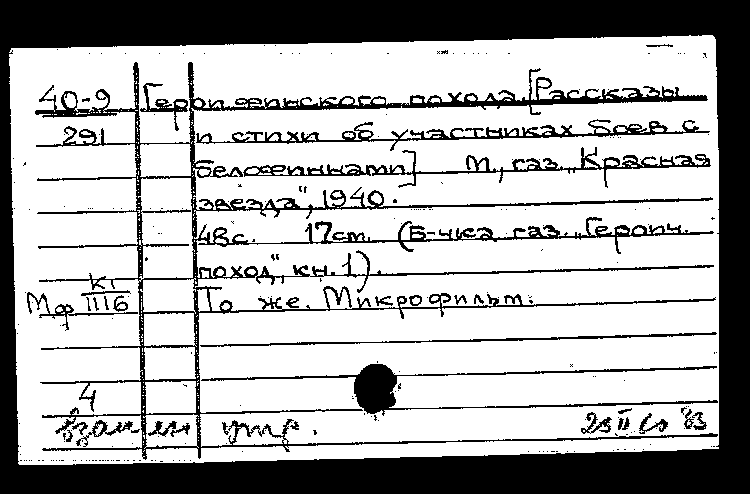 40-9 Герои финского похода. [Рассказы
291 и стихи об участниках боев с
белофиннами]. М., газ. „Красная
звезда", 1940.
48с. 17см. (Б-чка газ. „Героич.
поход", кн. 1).
Мф КГ/III6 То же. Микрофильм.
4
взамен утр.